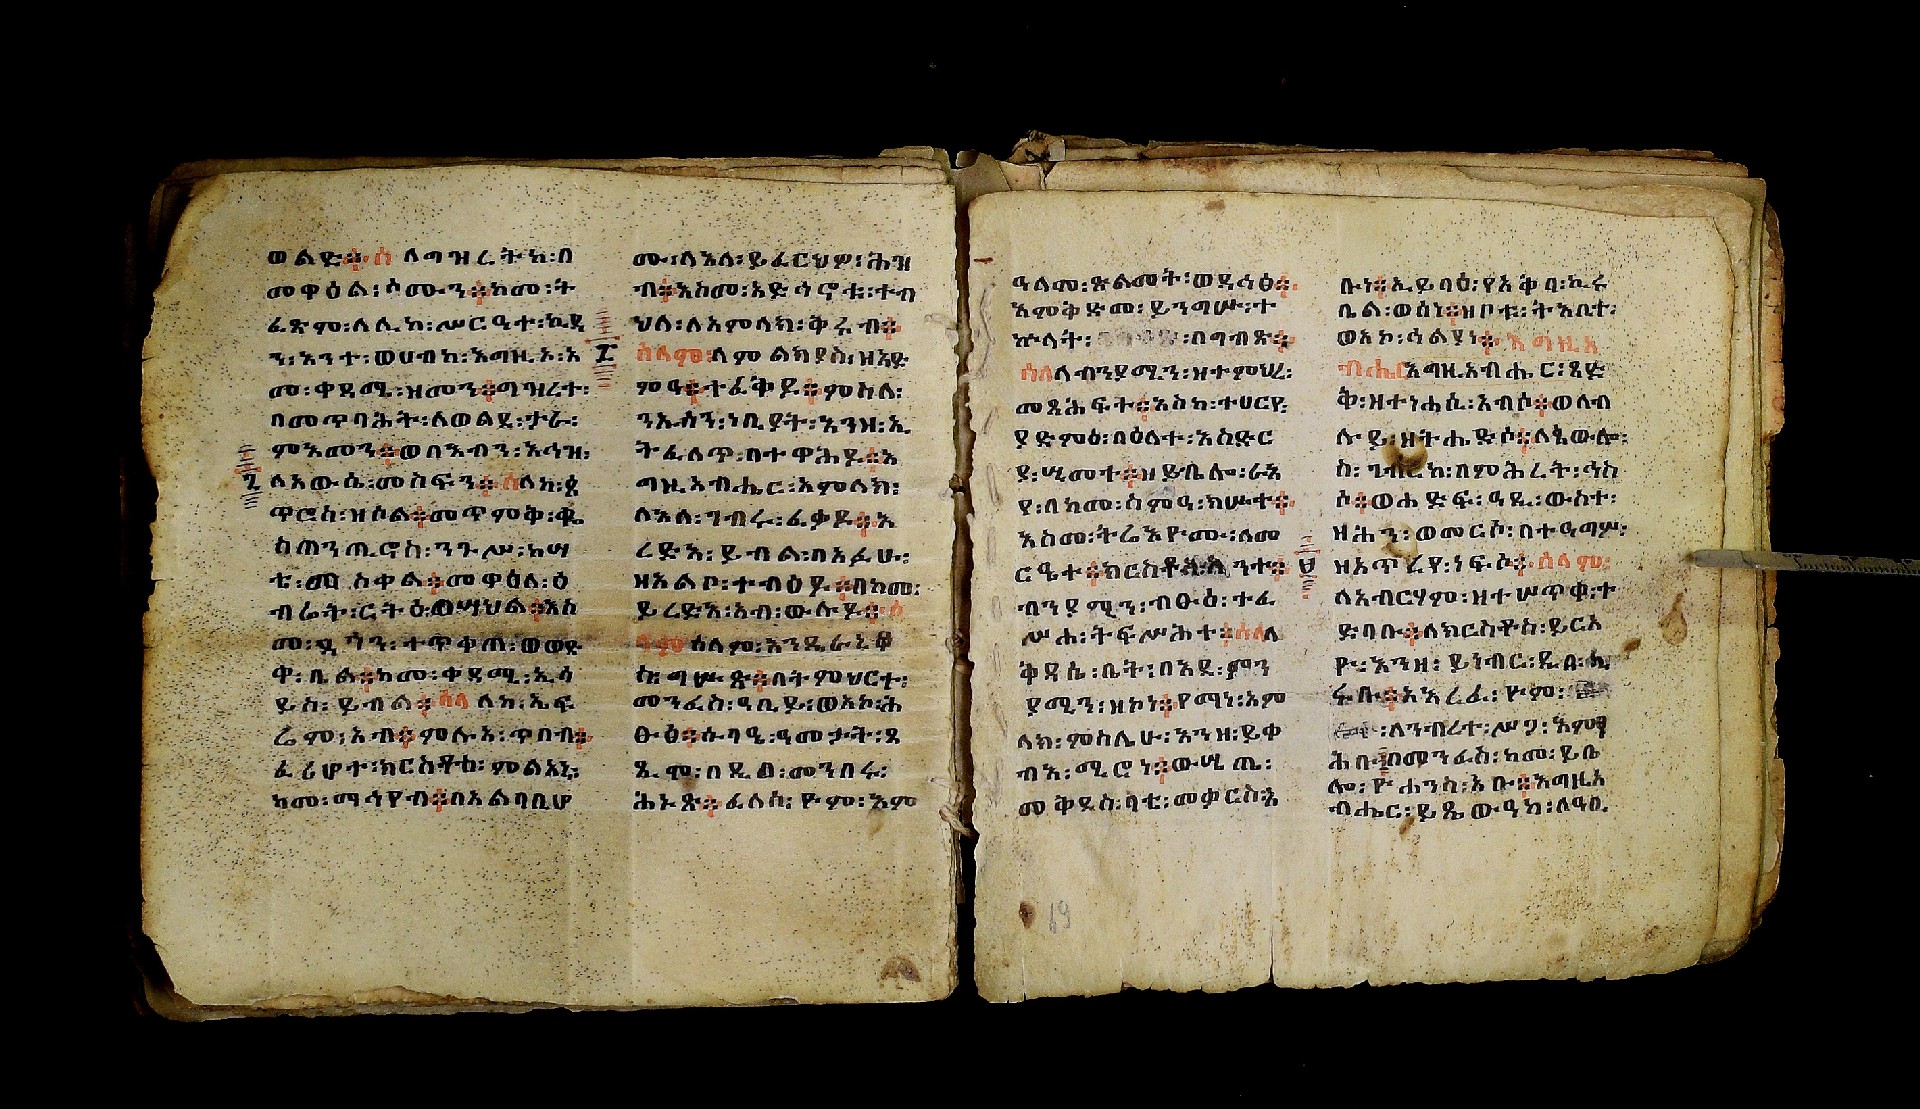 ወልድ። ሰ ለግዝረትከ፡ በ
መዋዕል፡ ሳሙን። ከመ፡ ት
ፈጽም፡ ለሊከ፡ ሥርዓተ፡ ኪዳ
ን፡ አንተ፡ ወሀብከ፡ እግዚኦ፡ አ
መ፡ ቀዳሚ፡ ዝመን። ግዝረተ፡
በመጥባሕት፡ ለወልደ፡ ታራ፡
ምእመን። ወበእብን፡ እኅዝ፡
ለአውሴ፡ መስፍን። ሰላለከ፡ ፄ
ጥሮስ፡ ዝሰል። መጥምቅ፡ ቈ
ስጠንጢኖስ፡ ንጉሥ፡ ከሣ
ቲ፡ መስቀል። መዋዕለ፡ ዕ
ብሬት፡ ርትዕ፡ ወሣህል። እስ
መ፡ ኪዳን፡ ተጥቀጠ፡ ወወድ
ቀ፡ ቤል። ከመ፡ ቀዳሚ፡ ኢሳ
ይስ፡ ይብል። ሰላ ለከ፡ ኤፍ
ሬም፡ አብ። ምሉአ፡ ጥበብ።
ፈሪሆተ፡ ክርስቶስ፡ ምልእኒ፡
ከመ፡ ማኅየብ። በእልባቢሆ
ሙ፡ ለእለ፡ ይፈርህዎ፡ ሕዝ
ብ። እስመ፡ እድኅኖቱ፡ ተብ
ህለ፡ ለአምላክ፡ ቅሩብ።
ሰላም፡ ለም ልክያስ፡ ዝእድ
ምዓ። ተፈቅዶ። ምስለ፡
ንኡሰን፡ ነቢያት፡ እንዝ፡ ኢ
ትፈለጥ፡ በተዋሕዶ። እ
ግዚአብሔር፡ አምላክ፡
ለእለ፡ ገብሩ፡ ፈቃዶ። እ
ረድእ፡ ይብል፡ በአፈሁ፡
ዘእልቦ፡ ተብዕዖ። በከመ፡
ይረድእ፡ አብ፡ ውሉዶ። ሰ
ላም ሰላም፡ እንዲራኒቆ
ስ፡ ግሡጽ። በትምህርተ፡
መንፈስ፡ ዓቢይ፡ ወአኮ፡ ሕ
ፁፅ። ሱባዔ፡ ዓመታት፡ ጸ
ጺሞ፡ በዲበ፡ መንበሩ፡
ሕኑጽ። ፈለስ፡ ዮም፡ እም
ዓለመ፡ ጽልመት፡ ወደኃፅ።
እምቅድመ፡ ይንግሥ፡ ተ
ኵላት፡ በግብጽ።
ሰላለብንያሚን፡ ዝተምህረ፡
መጸሕፍተ። እስከ፡ ተሀርየ፡
ያድምዕ፡ በዕለተ፡ እስድር
ያ፡ ሢመተ። ዘይቤሎ፡ ራእ
የ፡ በከመ፡ ስምዓ፡ ክሡተ።
እስመ፡ ትሬእዮሙ፡ ለመ
ርዔተ። ክርስቶስ፡ እንተ።
ብንያሚን፡ ብፁዕ፡ ተፈ
ሥሐ፡ ትፍሥሕተ። ሰላለ
ቅዳሴ፡ ቤት፡ በእደ፡ ምን
ያሚን፡ ዘኮነ። የማነ፡ አም
ላክ፡ ምስሌሁ፡ እንዘ፡ ይቀ
ብእ፡ ሚሮነ። ውሣጢ፡
መቅደስ፡ ባቲ፡ መቃርስ፡
ቡነ። ኢይባዕ፡ የአቅበ፡ ኲሩ
ቤል፡ ወሰነ። ዘቦቱ፡ ትእቢተ፡
ወአኮ፡ ሳልሂነ። እግዚአ
ብሔር እግዚአብሔር፡ ጸድ
ቅ፡ ዝተነሓሲ፡ አብሶ። ወለብ
ሉይ፡ ዘትሔድሶ። ለጳውሎ፡
ስ፡ ገብርከ፡ በምሕረት፡ ኅስ
ሶ። ወሐድፍ፡ ዓዲ፡ ውስተ፡
ዘሕን፡ ወመርሶ፡ በተዓግሦ፡
ዝእጥረየ፡ ነፍሶ። ሰላም፡
ለአብርሃም፡ ዘተሠጥቁ፡ ተ
ድባቡ። ለክርስቶስ፡ ይርአ
ዮ፡ እንዘ፡ ይነብር፡ ዲበ፡ ኪ
ሩቡ። አእረፈ፡ ዮም፡
፡ ለንብረተ፡ ሥጋ፡ እምዓ
ሕቡ። በመንፈስ፡ ከመ፡ ይቤ
ሎ፡ ዮሐንስ፡ አቡ። እግዚአ
ብሔር፡ ይጼውዓከ፡ ለዓቢ
19